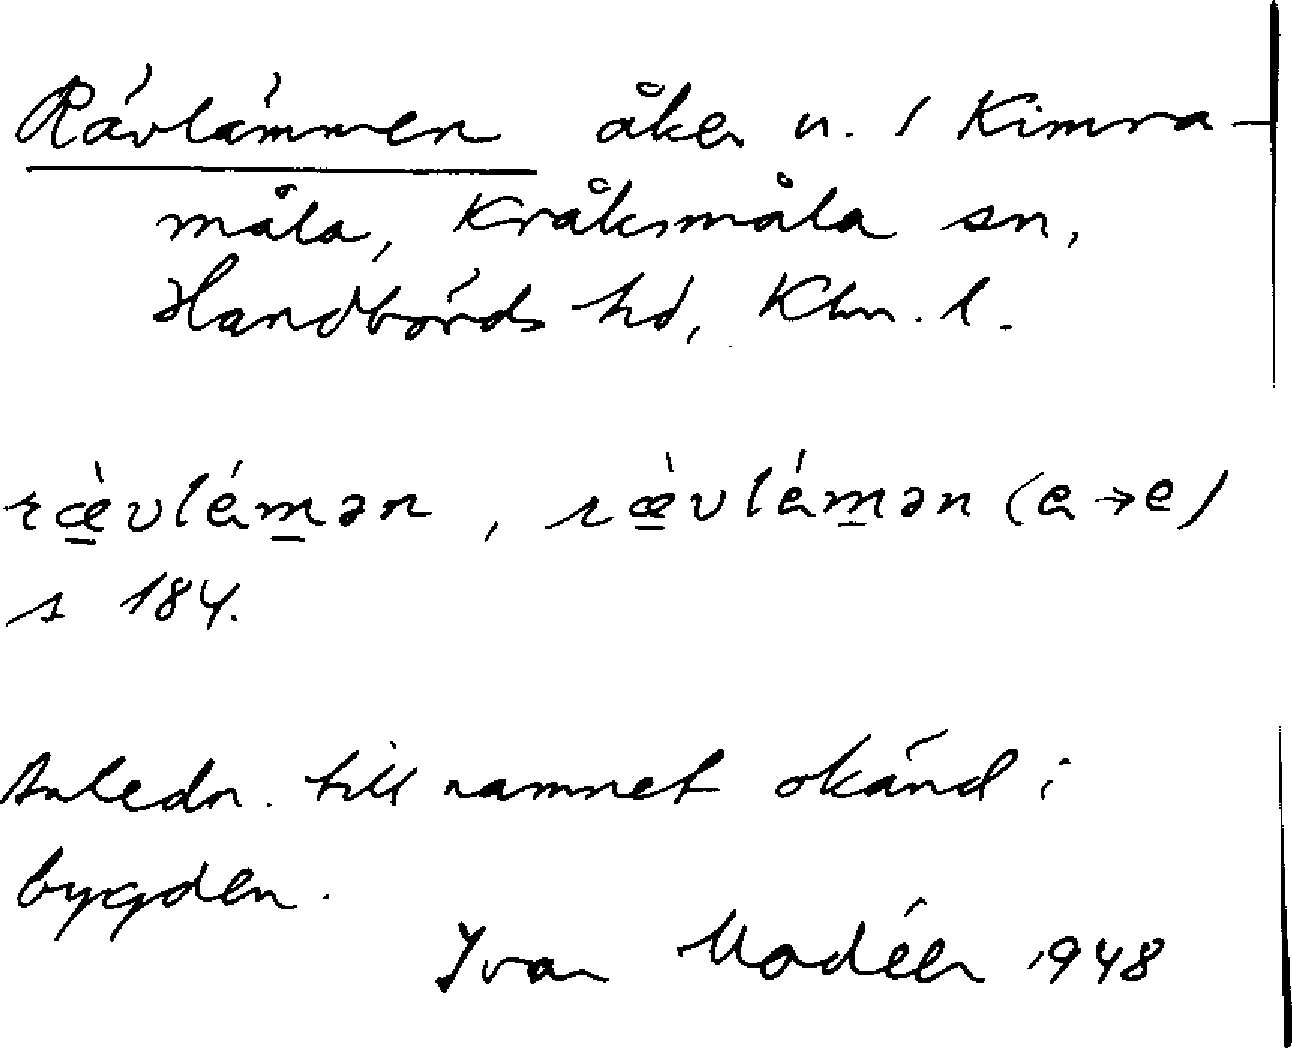 Rävlämmen åker n. 1 Kimra-
måla, Kråksmåla sn,
Handbörds hd, Klm. l.
ræ̀vlémən, ræ̀vlémən (e→e)
s 184.
Anledn. till namnet okänd i
bygden.
Ivar Modéer 1948